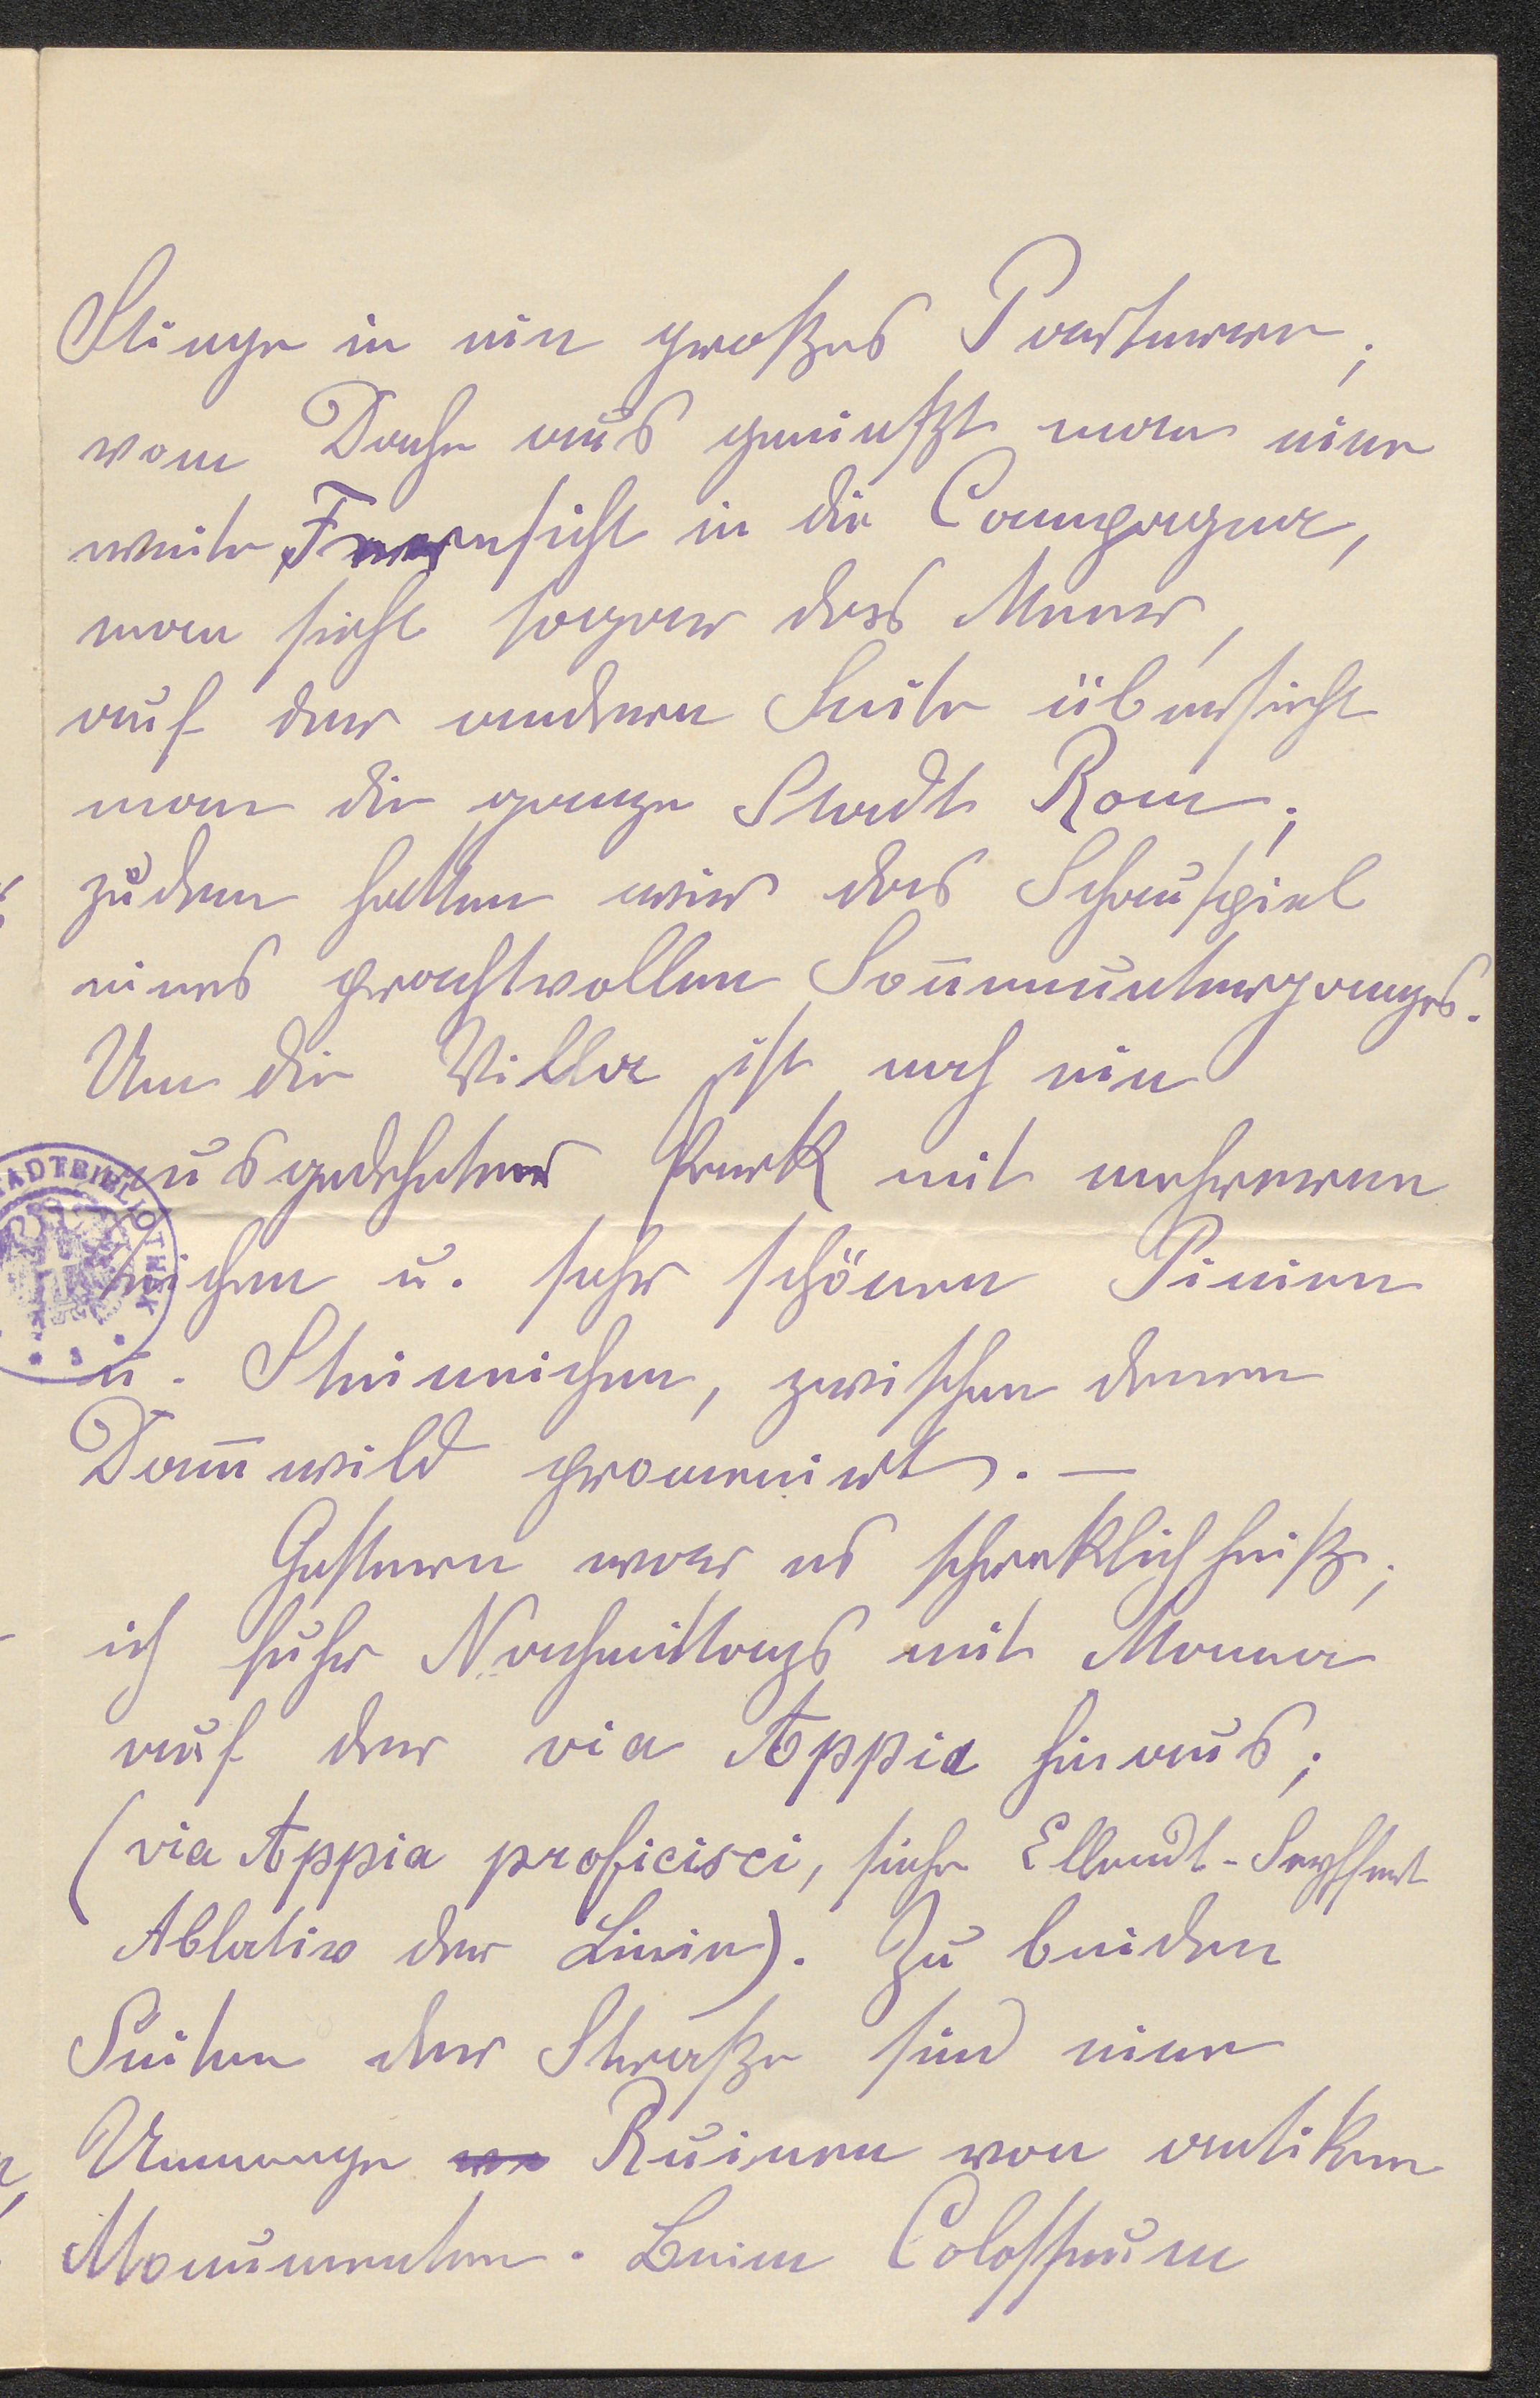 Stiege in ein großes Parterre;
vom Dache aus genießt man eine
weite Fernsicht in die Campagna,
man sieht sogar das Meer,
auf der anderen Seite übersieht
man die ganze Stadt Rom;
zudem hatten wir das Schauspiel
eines prachtvollen Soñenunterganges.
Um die Villa ist noch ein
ausgedehnter Park mit mehreren
Teichen u. sehr schönen Pinien
u. Steineichen, zwischen denen
Dam̄wild promenirt. —
Gestern war es schrecklich heiß;
ich fuhr Nachmittags mit Mama
auf der via Appia hinaus;
(via Appia proficisci, siehe Ellendt-Seyffert
Ablativ der Linie). Zu beiden
Seiten der Straße sind eine
Unmenge Ruinen von antiken
Monumenten. Beim Colosseum
STADTBIBLIOTHEK